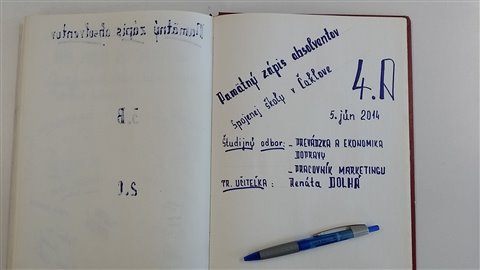 Pamätný zápis absolventov
Spojenej školy v Čaklove
4.A
5. jún 2014
Študijný odbor: - PREVÁDZKA A EKONOMIKA
DOPRAVY
- PRACOVNÍK MARKETINGU
TR. UČITEĽKA: Renáta DOLNÁ
Pamätný zápis absolventov